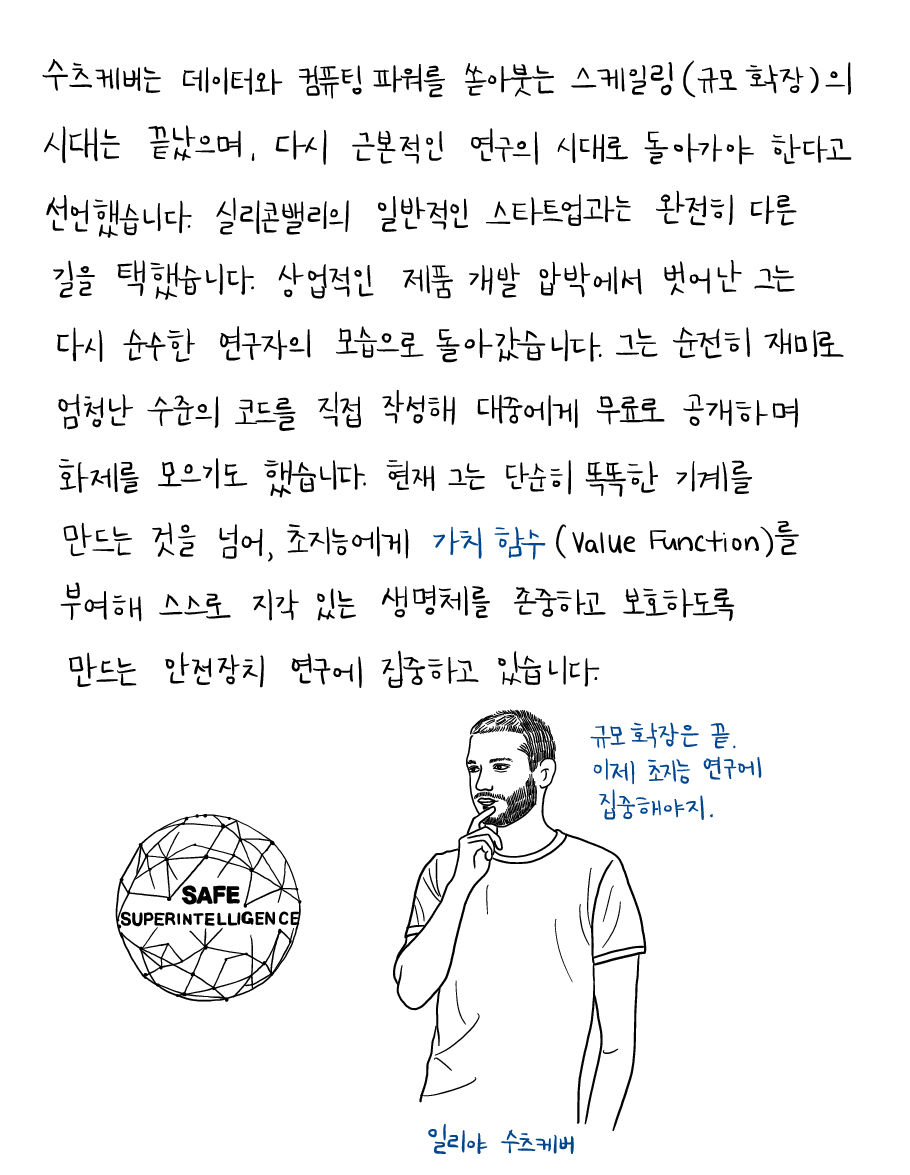 수츠케버는 데이터와 컴퓨팅 파워를 쏟아붓는 스케일링(규모 확장)의
시대는 끝났으며, 다시 근본적인 연구의 시대로 돌아가야 한다고
선언했습니다. 실리콘밸리의 일반적인 스타트업과는 완전히 다른
길을 택했습니다. 상업적인 제품 개발 압박에서 벗어난 그는
다시 순수한 연구자의 모습으로 돌아갔습니다. 그는 순전히 재미로
엄청난 수준의 코드를 직접 작성해 대중에게 무료로 공개하며
화제를 모으기도 했습니다. 현재 그는 단순히 똑똑한 기계를
만드는 것을 넘어, 초지능에게 가치 함수(Value Function)를
부여해 스스로 지각 있는 생명체를 존중하고 보호하도록
만드는 안전장치 연구에 집중하고 있습니다.
규모 확장은 끝.
이제 초지능 연구에
집중해야지.
SAFE
SUPERINTELLIGENCE
일리야 수츠케버